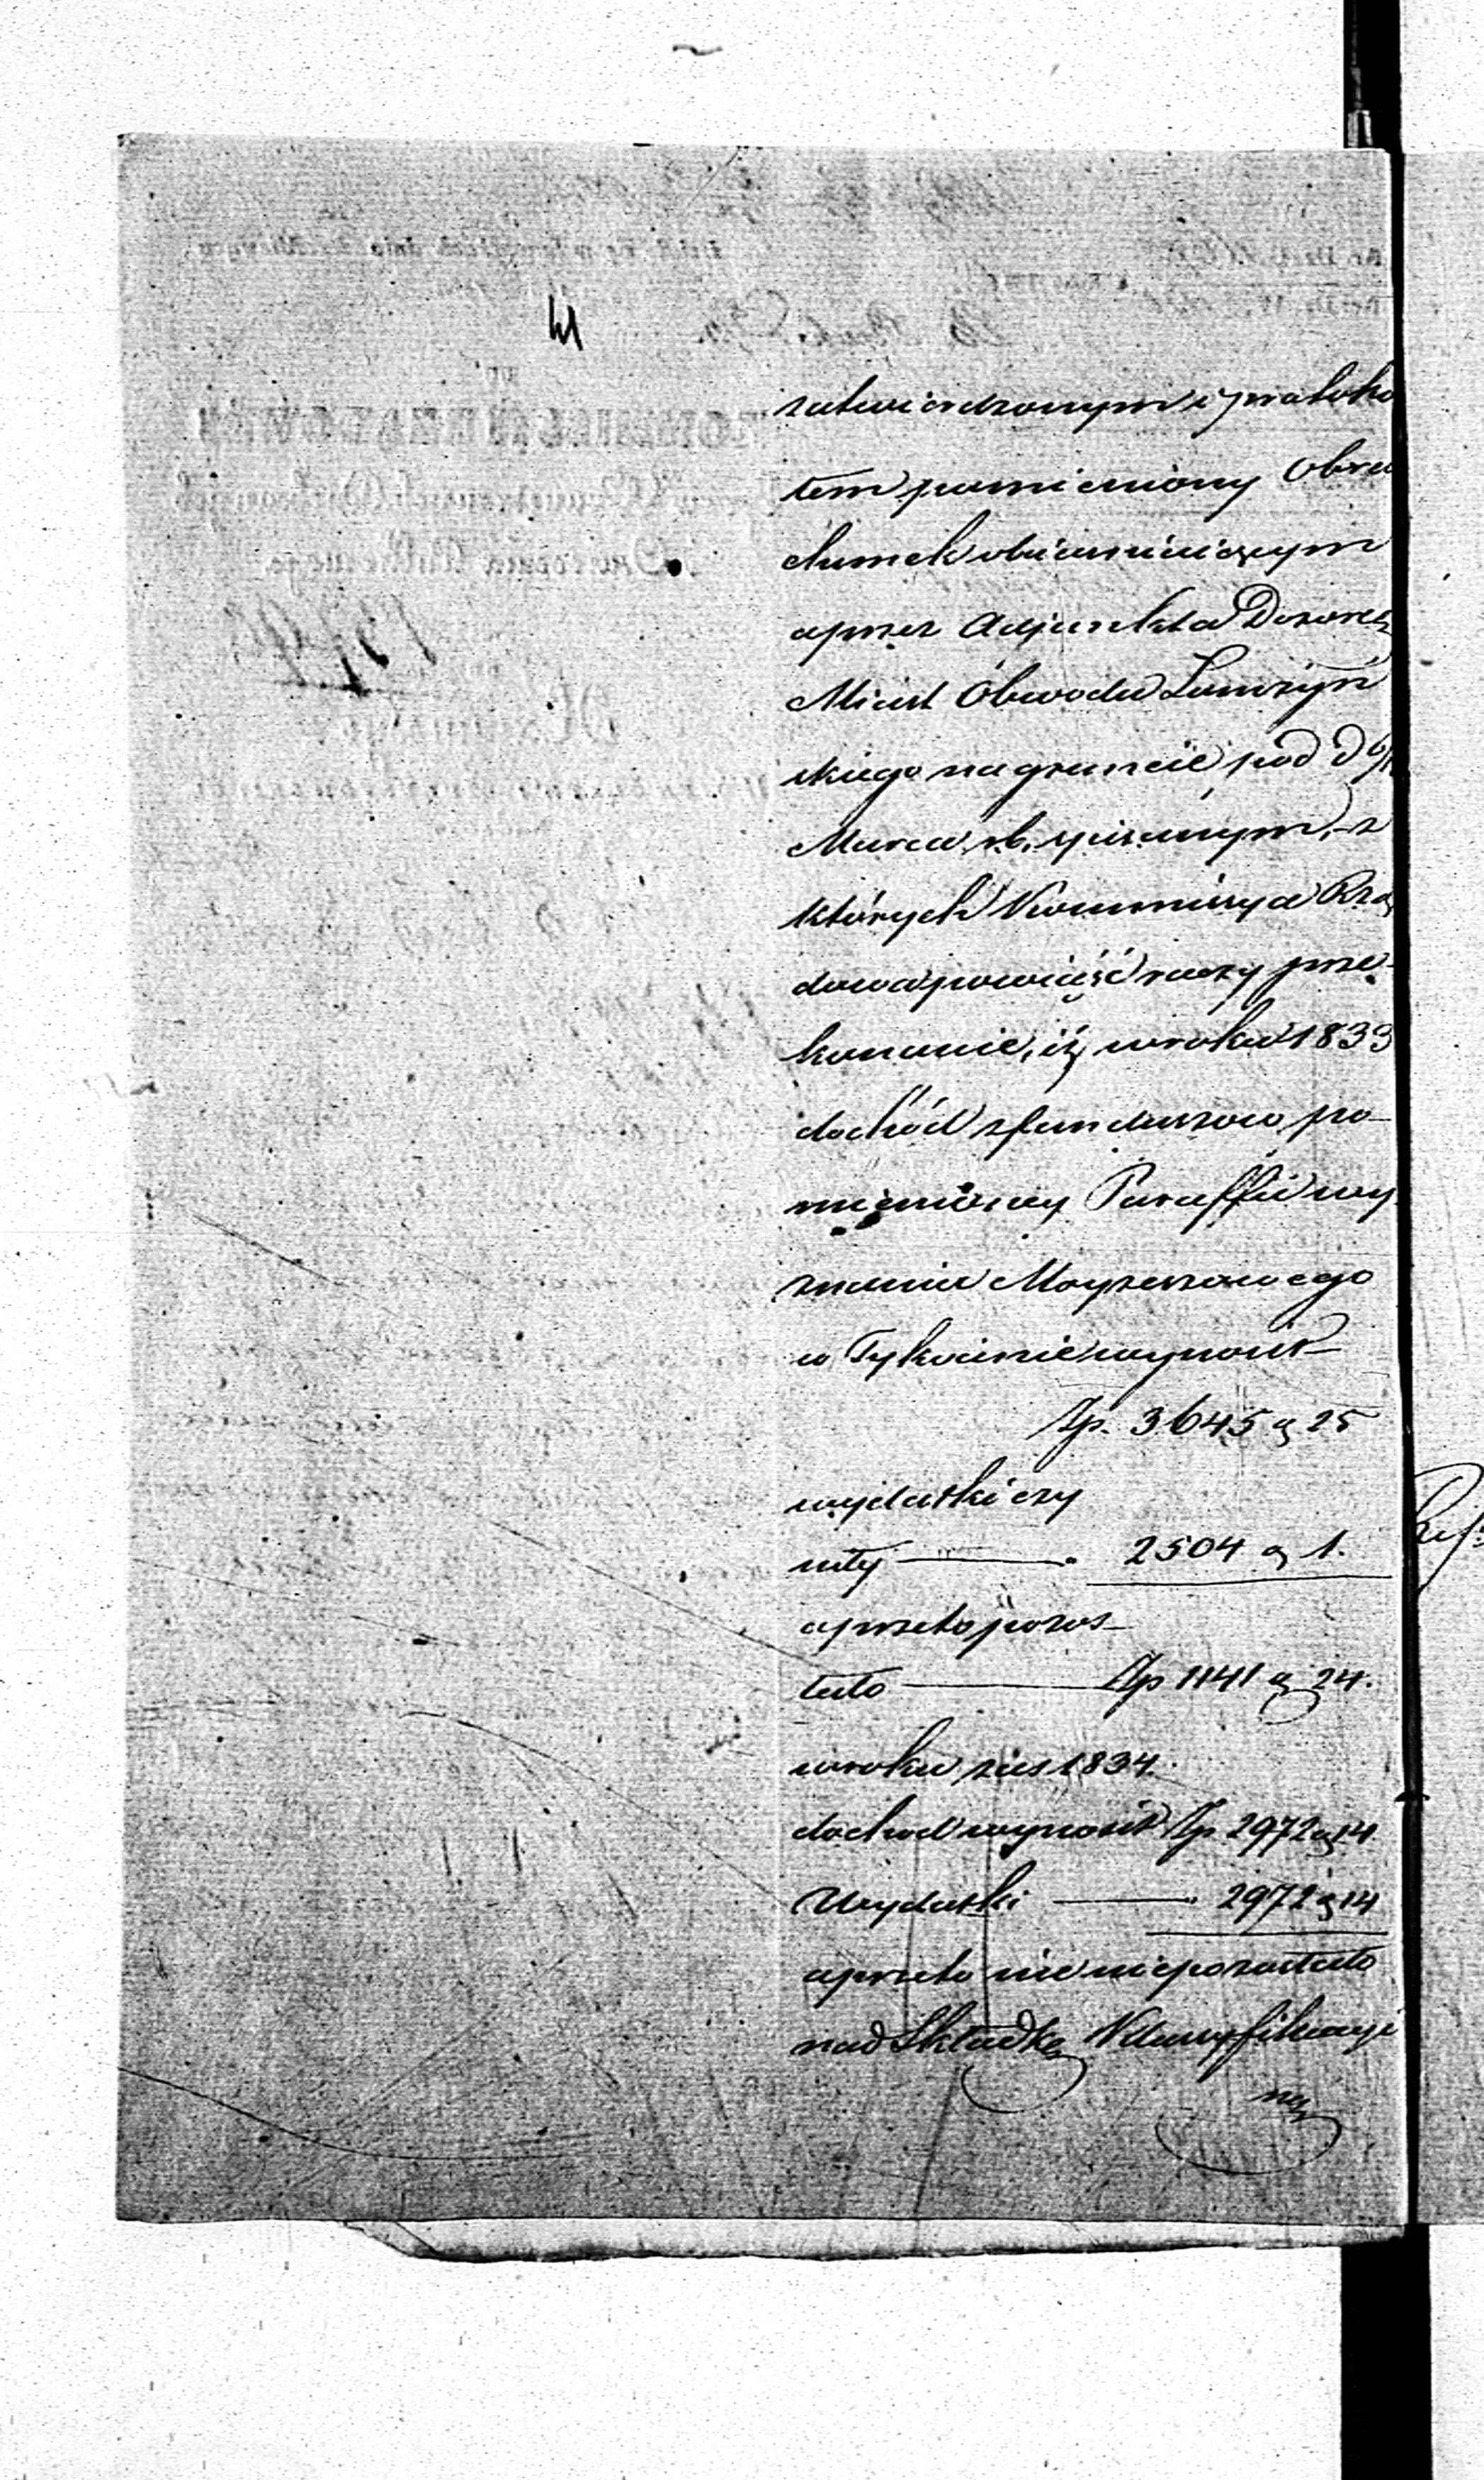 zatwierdzonym i protoko
tem pomieniony Obra
chunek obiasniaiącym
a przez Adjunkta Dozorcę
Miast Obwodu Łomżyń
skiego na gruncie pod d 9
Marca rb. spisanym, z
których Kommissya Rzą
dowa powziąść raczy prze-
konanie, iż w roku 1833
dochód z funduszow po-
mienioney Paraffii wy
znania Moyżeszowego
w Tykocinie wynosił
Zp. 3645 g 25
wydatki czy
niły — 2504 g 1.
a przeto pozos-
tało — Zp 1141 g 24.
w roku zas 1834.
dochod wynosił Zp 2972 g 14
Wydatki — 2972 g 14
a przeto nic niepozostało
nad Składkę Klassyfikacyi
ną